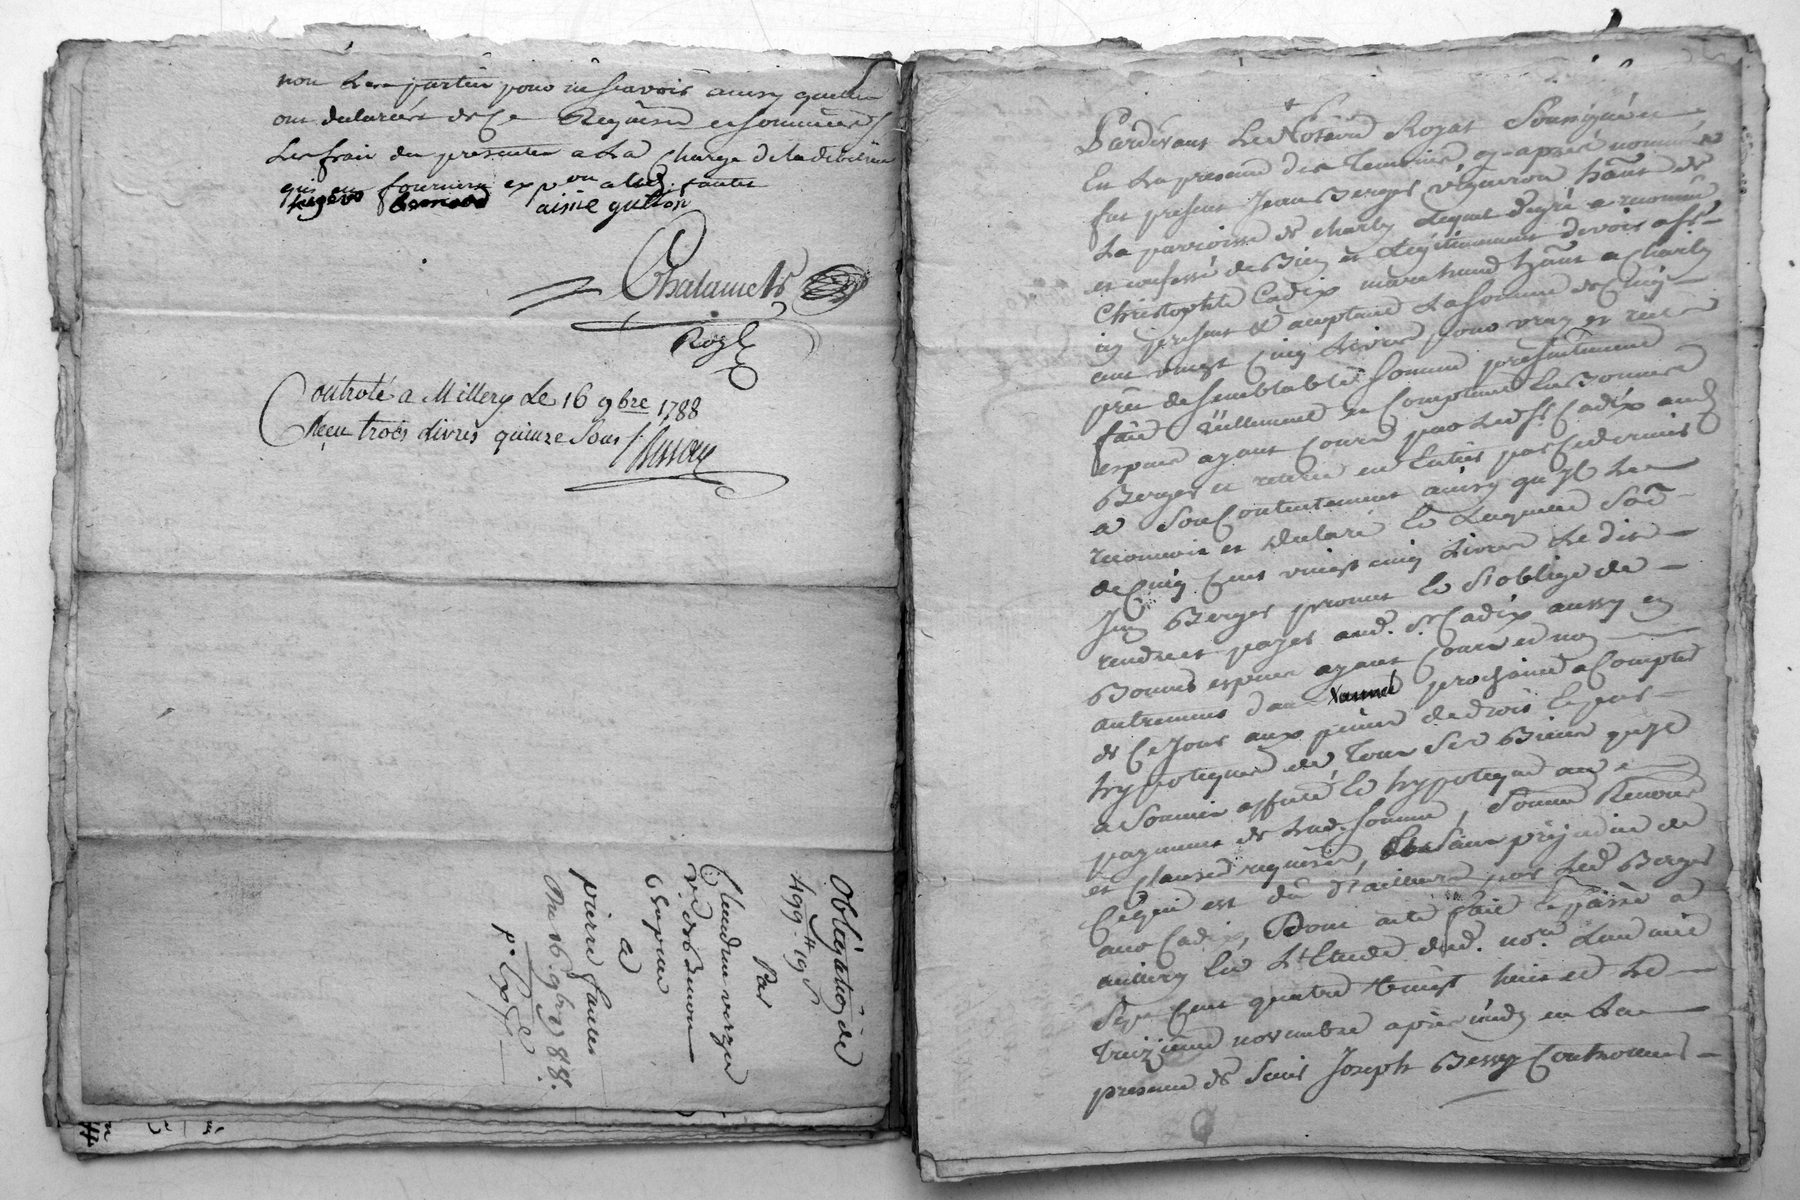 non les parties pour ne scavoir ainsy quelles
ont declarées de ce Requises et sommées
Les frais des presentes a la charge de la debitrice
qui en fournira expon aud. fautes
aimé gutton
Chalamets
Roy.l
Controlé a Millery Le 16 9bre 1788
Reçu trois livres quinze sous
Obligation de
499.tt 19 s
Par
Claudine
ve de
a
pierre fautes
Du 16 9bre 1788.
p. Exp.
Pardevant Le Notaire Royal Soussigné
Et En presence des Temoins cy-apres nommés
fut present Jean Berger vigneron habt. de
La parroisse de charly Lequel de gré a reconnu
et confessé de Bien et Légitimement devoir a sr.
Christophle Cadix marchand habt. a Charly
icy present & acceptant La somme de Cinq
cent vingt Cinq Livres pour vray et réel
prêt de semblable somme presentement
fait réellement et Comptant En Bonnes
especes ayant Cours par led. sr. Cadix aud.
Berger et retiré en Entier par Ce dernier
a son Contentement ainsy qu'il Le
reconnoit et declare Et Laquelle Somme
de Cinq Cent vingt cinq Livres Ledit
Jean Berger promet Et S'oblige de
rendre et payer aud. Sr. Cadix aussy en
Bonnes especes ayant Cours et non
autrement dans L'année prochaine a Compter
de Ce Jour aux peines de droit Et par
hypotéque de Tous Ses Biens qu'il
a Soumis affecté Et hypotequé au
payement de lad. Somme, Soumis Renoncé
et Clauses requises, Sans préjudice de
Ce qui est dû d'ailleurs par led. Berger
aud. Cadix, Dont acte fait Et passé a
En L'Etude dud. nore. L'an mil
Sept Cent quatre vingt huit et Le
Treizieme novembre apres midy en La
presence de Sieur Joseph Bessy Controlleur